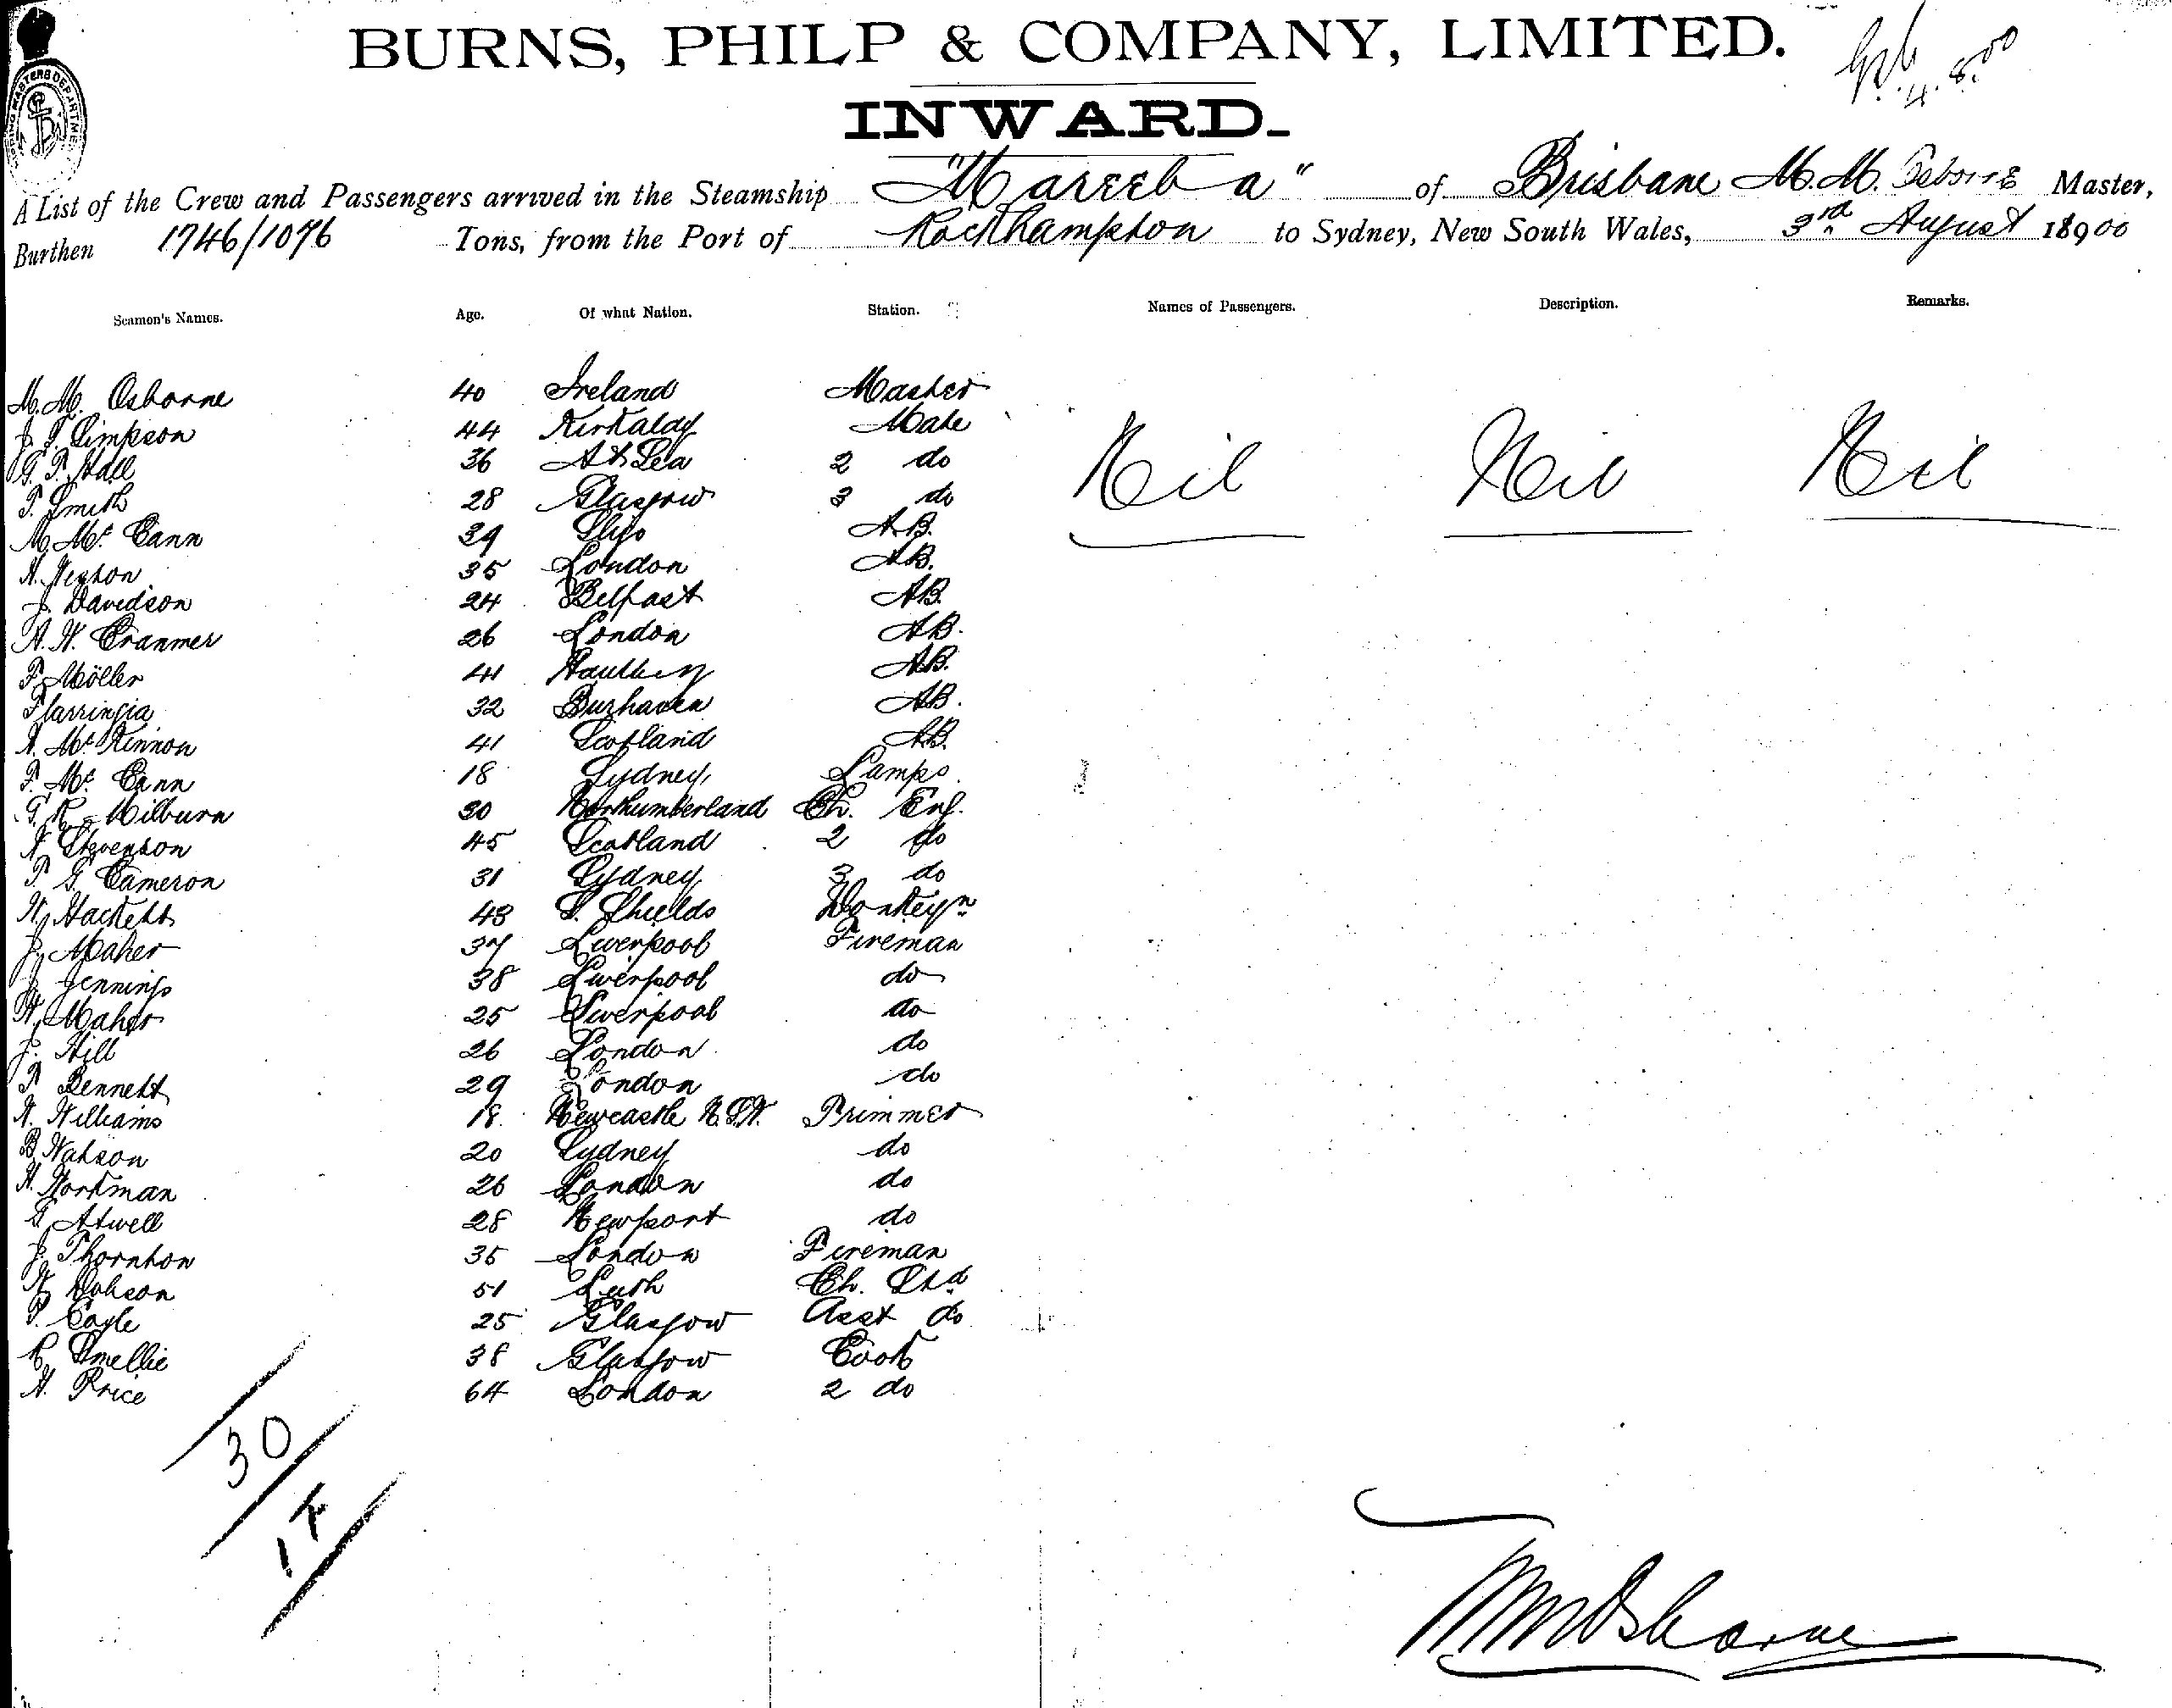 BURNS, PHILP & COMPANY, LIMITED.
4.8.00
INWARD.
A List of the Crew and Passengers arrived in the Steamship "Mareeba" of Brisbane M.M. Osborne Master,
Burthen 1746/1076 Tons, from the Port of Rockhampton to Sydney, New South Wales, 3rd August 18900
Seamen's Names. Age. Of what Nation. Station. Names of Passengers. Description. Remarks.
M.M. Osborne 40 Ireland Master
J. T. Simpson 44 Kirkaldy Mate
G. T. Hall 36 At Sea 2 do
T. Smith 28 Glasgow 3 do
Nil Nil Nil
M. Mc Cann 39 Sligo A.B.
H. Weston 35 London A.B.
J. Davidson 24 Belfast A.B.
A. W. Cranmer 26 London A.B.
P. Möller 41 A.B.
32 A.B.
A. Mc Kinnon 41 Scotland A.B.
T. Mc Cann 18 Sydney Lamps
G. R. Milburn 30 Northumberland Ch. Eng.
Stevenson 45 Scotland 2 do
T. G. Cameron 31 Sydney 3 do
W. Hackett 43 S. Shields Donkeyn
J. Maher 37 Liverpool Fireman
J. Jennings 38 Liverpool do
W. Maher 25 Liverpool do
J. Hill 26 London do
T. Bennett 29 London do
W. Williams 18 Newcastle N.S.W. Trimmer
B. Watson 20 Sydney do
H. Workman 26 London do
G. Atwell 28 Newport do
J. Thornton 35 London Fireman
W. Dobson 51 Leith Ch. Std
T. Cagle 25 Glasgow Asst do
R. Smellie 38 Glasgow Cook
H. Price 64 London 2 do
30
MMOsborne